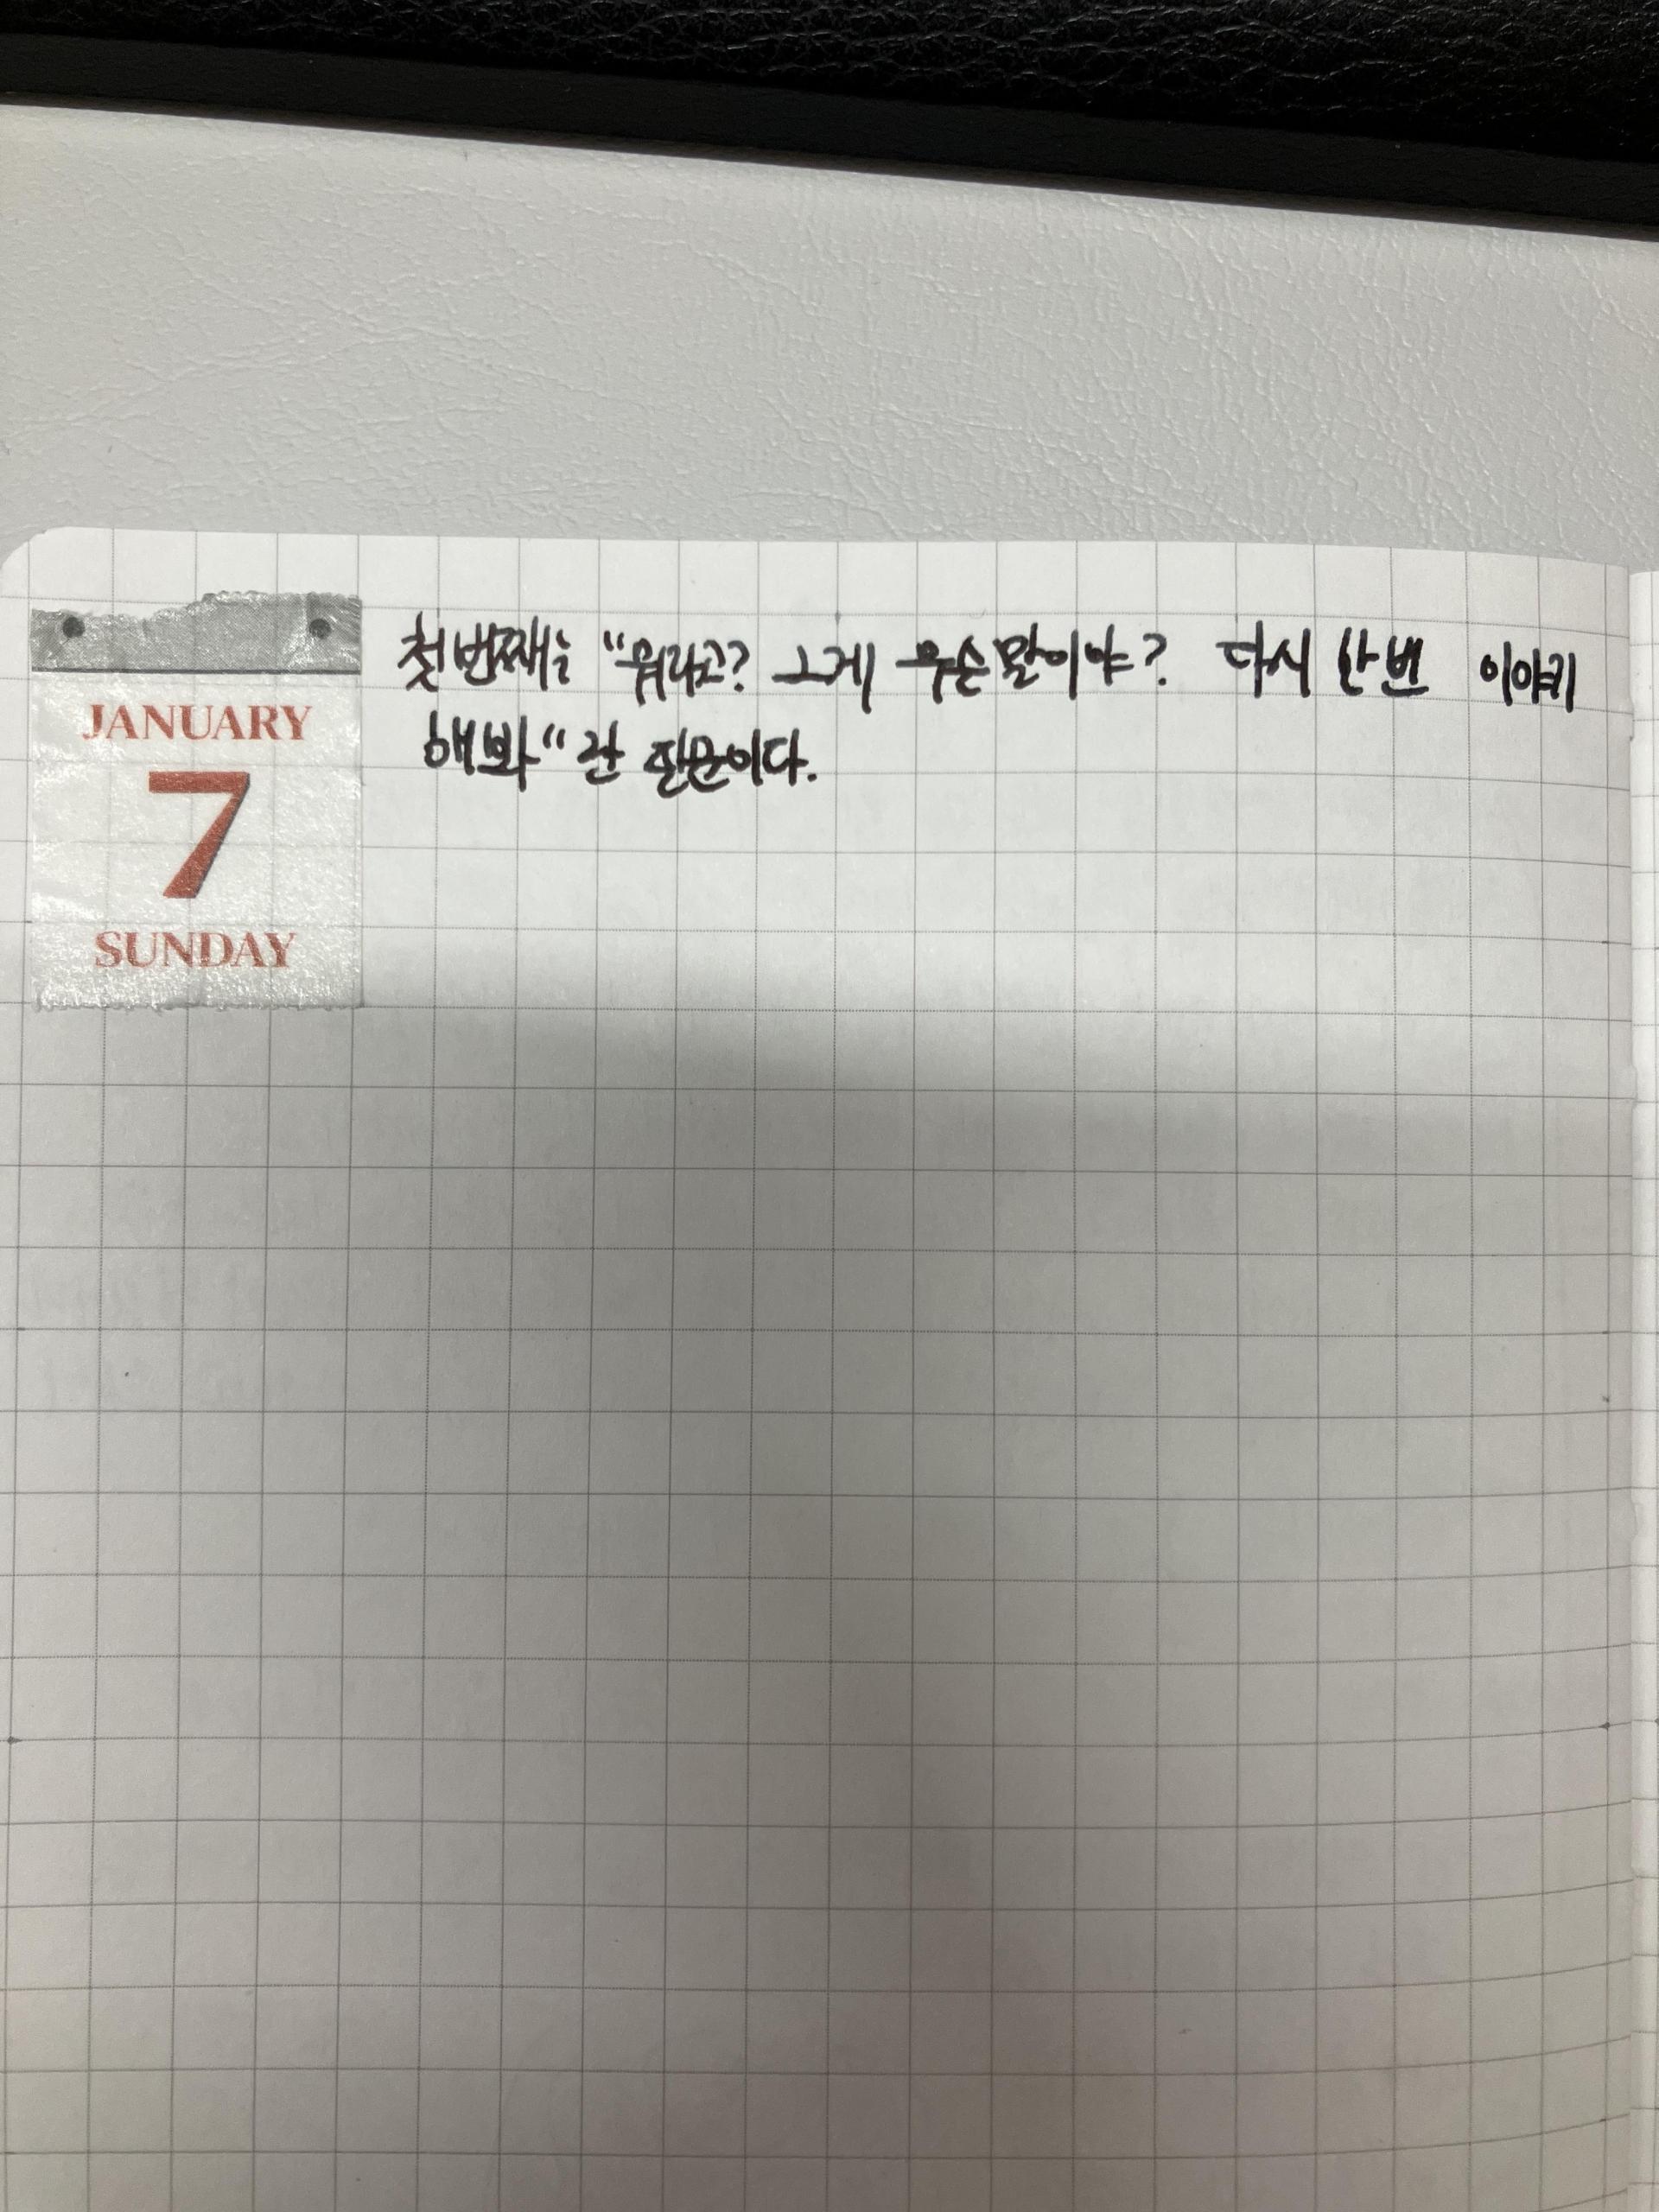 JANUARY
7
SUNDAY
첫번째는 "뭐라고? 그게 무슨말이야? 다시 한번 이야기
해봐" 란 질문이다.